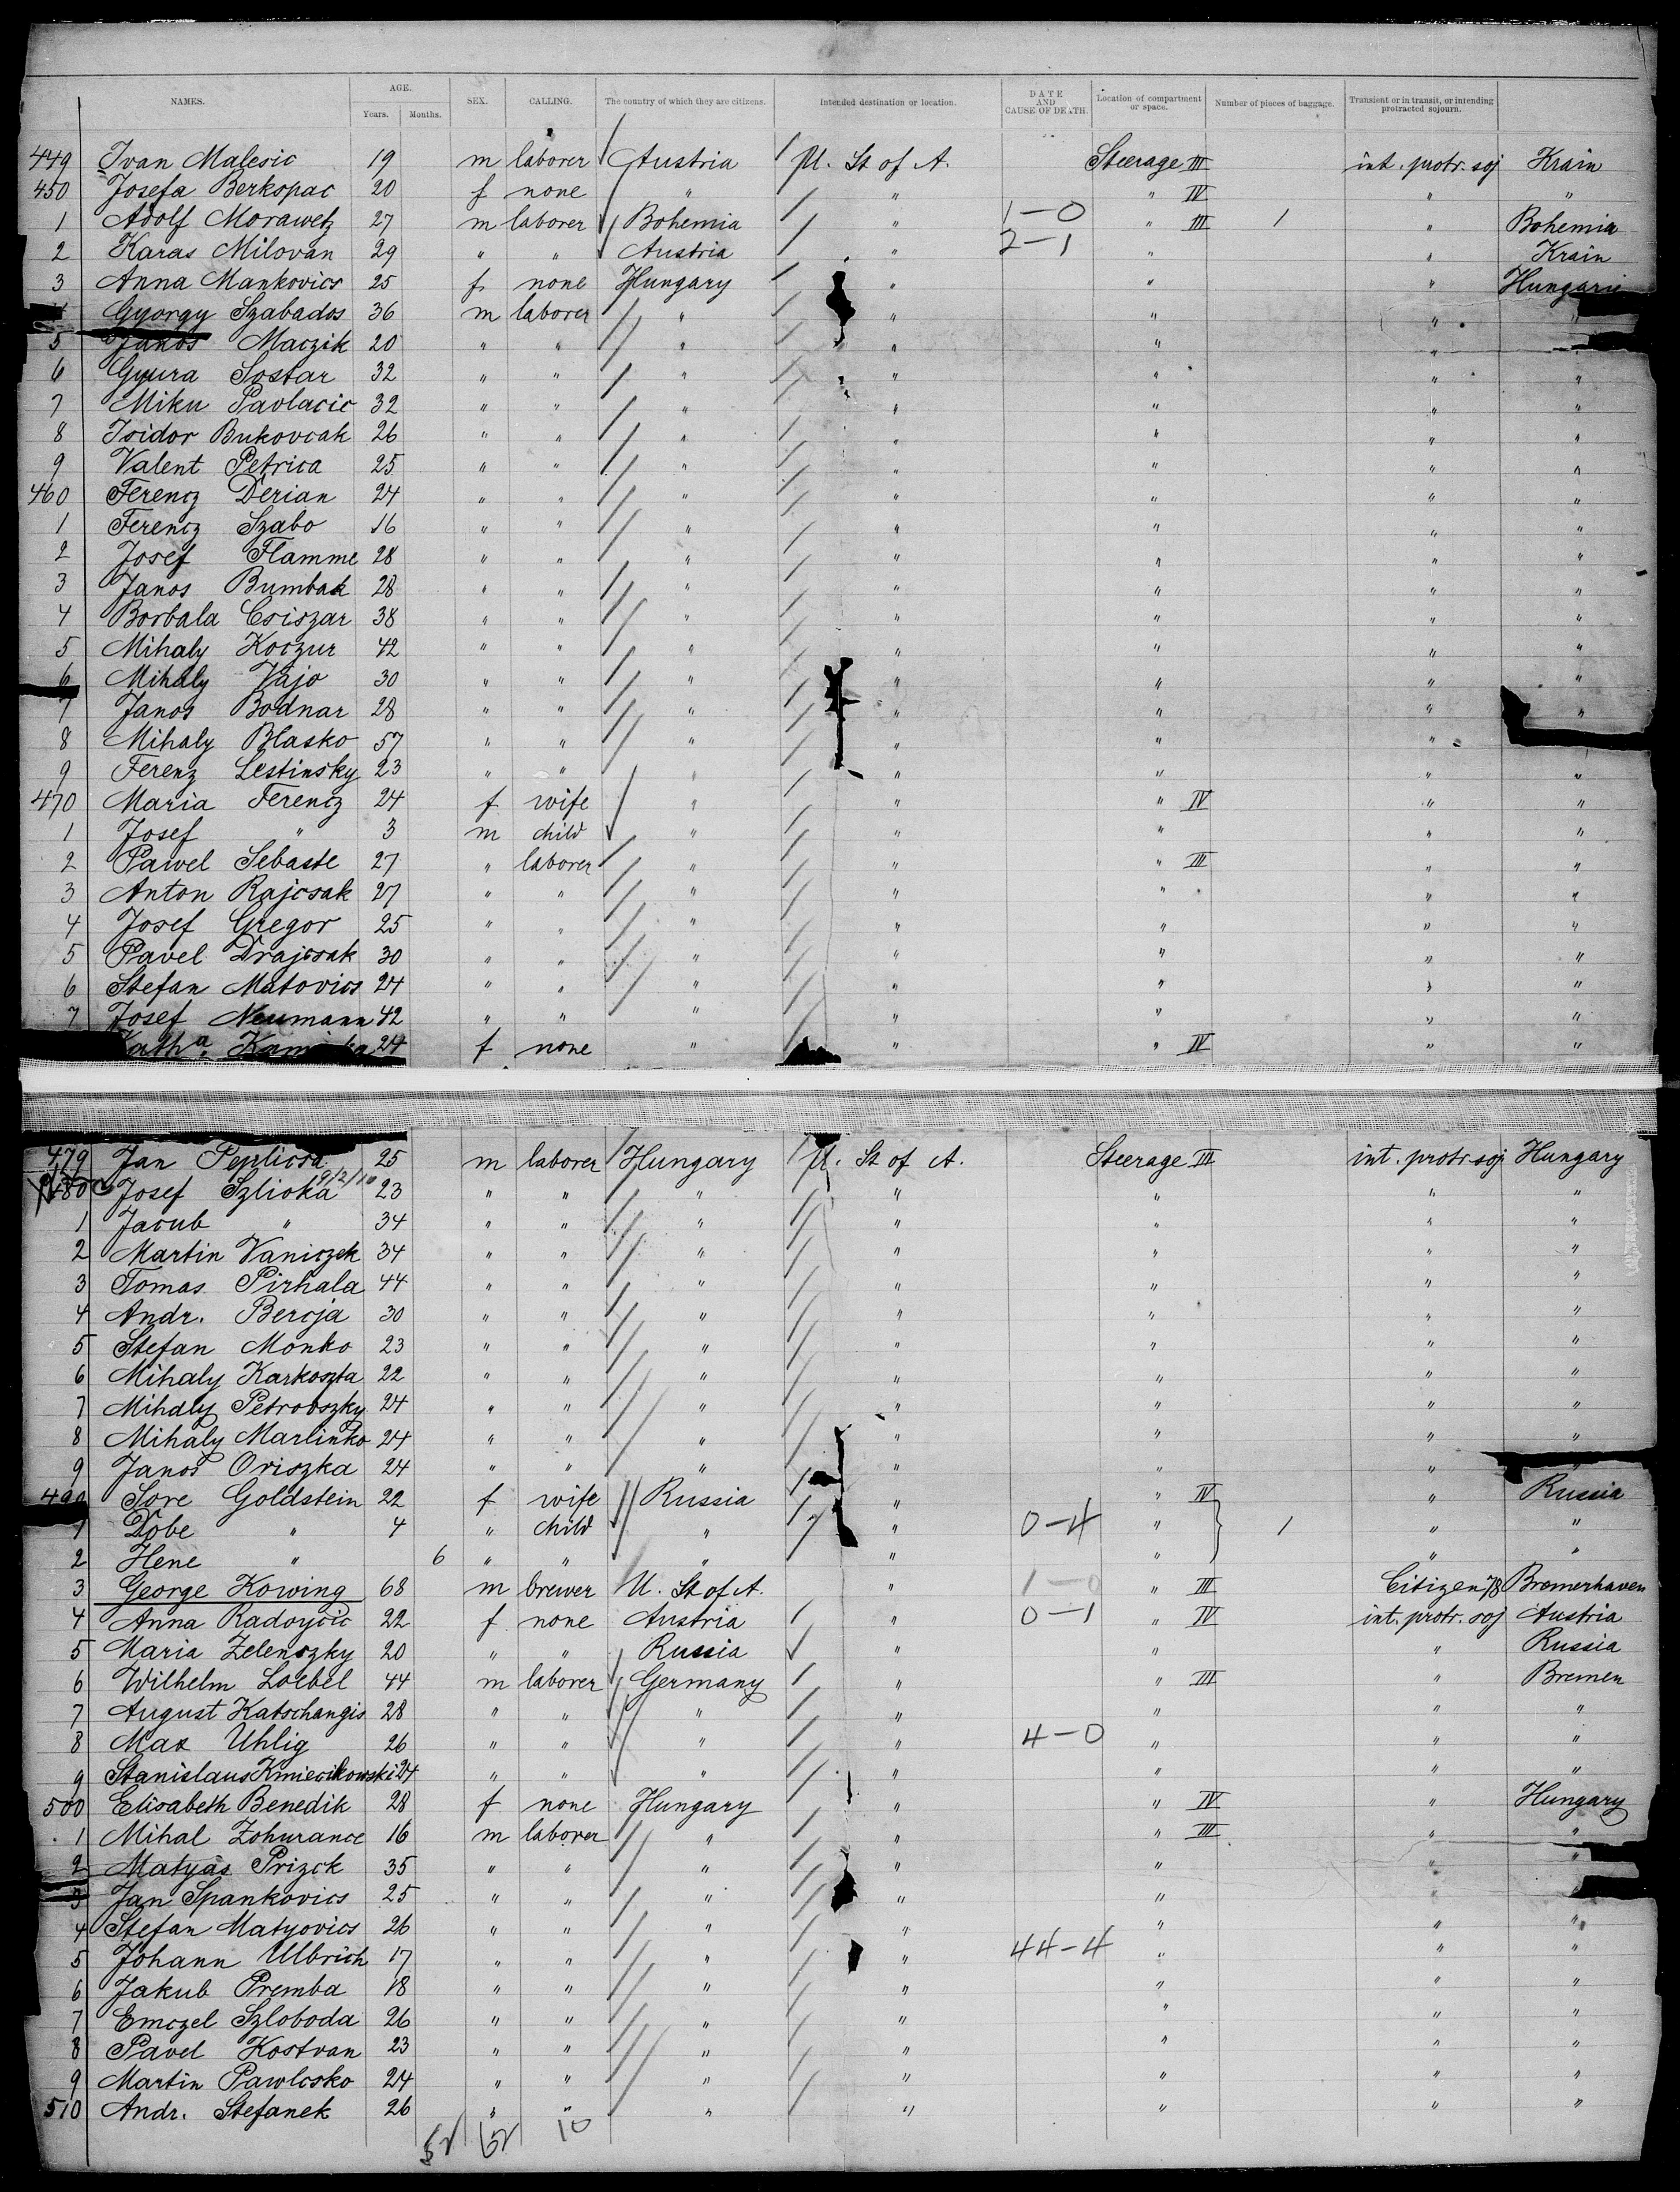 NAMES. AGE. Years. Months. SEX. CALLING. The country of which they are citizens. Intended destination or location. DATE AND CAUSE OF DEATH. Location of compartment or space. Number of pieces of baggage. Transient or in transit, or intending protracted sojourn.
449 Ivan Malesic 19 m laborer Austria U. St of A. Steerage III int. protr. soj Krain
450 Josefa Berkopac 20 f none " " " IV " "
1 Adolf Morawetz 27 m laborer Bohemia " 1-0 " III 1 " Bohemia
2 Karas Milovan 29 " " Austria " 2-1 " " Krain
3 Anna Mankovics 25 f none Hungary " " " Hungarie
Gyorgy Szabados 36 m laborer " " " " "
5 Janos Maczik 20 " " " " " "
6 Gyura Sostar 32 " " " " " " "
7 Miku Pavlacic 32 " " " " " " "
8 Isidor Bukovcak 26 " " " " " " "
9 Valent Petrica 25 " " " " " " "
460 Ferencz Derian 24 " " " " " " "
1 Ferencz Szabo 16 " " " " " " "
2 Josef Flamme 28 " " " " " " "
3 Janos Bumbak 28 " " " " " " "
4 Borbala Csiszar 38 " " " " " " "
5 Mihaly Koczur 42 " " " " " " "
6 Mihaly Vajo 30 " " " " " " "
7 Janos Bodnar 28 " " " " " " "
8 Mihaly Blasko 57 " " " " " "
9 Ferenz Lestinsky 23 " " " " " " "
470 Maria Ferencz 24 f wife " " " IV " "
1 Josef " 3 m child " " " " "
2 Pawel Sebaste 27 " laborer " " " III " "
3 Anton Rajcsak 27 " " " " " " "
4 Josef Gregor 25 " " " " " " "
5 Pavel Drajcsak 30 " " " " " " "
6 Stefan Matovics 24 " " " " " " "
7 Josef Neumann 42 " " " " " " "
Katha. 24 f none " " " IV " "
479 Jan Peplicsa 25 m laborer Hungary U. St of A. Steerage III int. protr. soj Hungary
480 Josef Szlioka 23 " " " " " " "
1 Jacub " 34 " " " " " " "
2 Martin Vaniczek 34 " " " " " " "
3 Tomas Pirhala 44 " " " " " " "
4 Andr. Bercja 30 " " " " " " "
5 Stefan Monko 23 " " " " " " "
6 Mihaly Karkoszta 22 " " " " " " "
7 Mihaly Petrovszky 24 " " " " " " "
8 Mihaly Marlinko 24 " " " " " " "
9 Janos Oriszka 24 " " " " " " "
490 Sore Goldstein 22 f wife Russia " " IV " Russia
1 Dobe " 4 " child " " 0-4 " 1 " "
2 Hene " 6 " " " " " " "
3 George Kowing 68 m brewer U. St of A. " 1-0 " III Citizen 78 Bremerhaven
4 Anna Radoycic 22 f none Austria " 0-1 " IV int. protr. soj Austria
5 Maria Zelenszky 20 " " Russia " " " Russia
6 Wilhelm Loebel 44 m laborer Germany " " III " Bremen
7 August Katschangis 28 " " " " " " "
8 Max Uhlig 26 " " " " 4-0 " " "
9 Stanislaus Kmiecikowski 24 " " " " " " "
500 Elisabeth Benedik 28 f none Hungary " " IV " Hungary
1 Mihal Zohurance 16 m laborer " " " III " "
2 Matyas Prizck 35 " " " " " " "
3 Jan Spankovics 25 " " " " " "
4 Stefan Matyovics 26 " " " " " " "
5 Johann Ulbrich 17 " " " " 44-4 " " "
6 Jakub Premba 18 " " " " " " "
7 Emczel Szloboda 26 " " " " " " "
8 Pavel Kostvan 23 " " " " " " "
9 Martin Pawlcsko 24 " " " " " " "
510 Andr. Stefanek 26 " " " " " " "
10